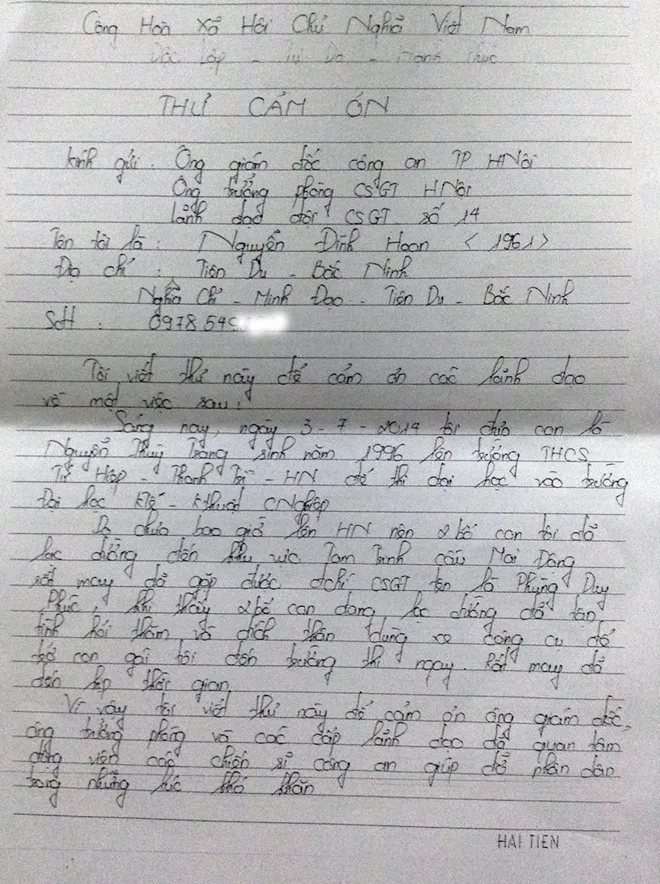 Cộng Hoà Xã Hội Chủ Nghĩa Việt Nam
Độc Lập - Tự Do - Hạnh Phúc
THƯ CẢM ƠN
Kính gửi: Ông giám đốc công an TP HNội
Ông trưởng phòng CSGT HNội
Lãnh đạo đội CSGT số 14
Tên tôi là: Nguyễn Đình Hoan <1961>
Địa chỉ: Tiên Du - Bắc Ninh
Nghĩa Chỉ - Minh Đạo - Tiên Du - Bắc Ninh
SĐT: 0978 549
Tôi viết thư này để cảm ơn các lãnh đạo
về một việc sau:
Sáng nay, ngày 3-7-2014 tôi đưa con là
Nguyễn Thùy Trang sinh năm 1996 lên trường THCS
Tứ Hiệp - Thanh Trì - HN để thi đại học vào trường
Đại học Ktế - Kthuật CNghiệp
Do chưa bao giờ lên HN nên 2 bố con tôi đã
lạc đường đến khu vực Tam Trinh cầu Mai Động
rất may đã gặp được đchí CSGT tên là Phùng Duy
Phúc, khi thấy 2 bố con đang lạc đường đã tận
tình hỏi thăm và đích thân dùng xe công cụ để
trở con gái tôi đến trường thi ngay. Rất may đã
đến kịp thời gian
Vì vậy tôi viết thư này để cảm ơn ông giám đốc,
ông trưởng phòng và các cấp lãnh đạo đã quan tâm
động viên các chiến sĩ công an giúp đỡ nhân dân
trong những lúc khó khăn
HAI TIEN